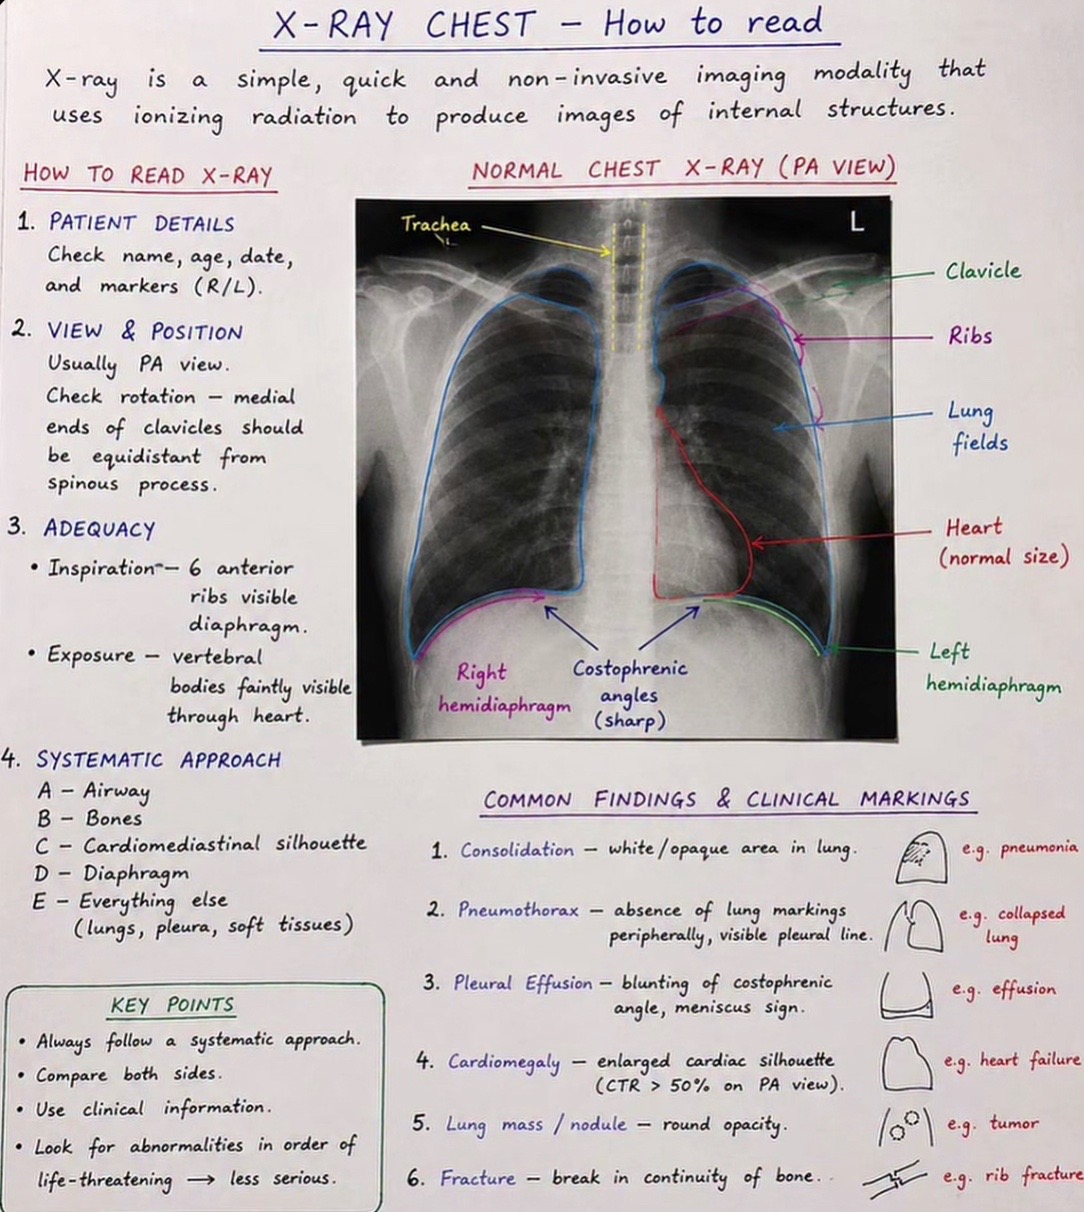 X-RAY CHEST – How to read
X-ray is a simple, quick and non-invasive imaging modality that
uses ionizing radiation to produce images of internal structures.
HOW TO READ X-RAY
1. PATIENT DETAILS
Check name, age, date,
and markers (R/L).
2. VIEW & POSITION
Usually PA view.
Check rotation – medial
ends of clavicles should
be equidistant from
spinous process.
3. ADEQUACY
• Inspiration – 6 anterior
ribs visible
diaphragm.
• Exposure – vertebral
bodies faintly visible
through heart.
4. SYSTEMATIC APPROACH
A – Airway
B – Bones
C – Cardiomediastinal silhouette
D – Diaphragm
E – Everything else
(lungs, pleura, soft tissues)
KEY POINTS
• Always follow a systematic approach.
• Compare both sides.
• Use clinical information.
• Look for abnormalities in order of
life-threatening → less serious.
NORMAL CHEST X-RAY (PA VIEW)
Trachea
L
Clavicle
Ribs
Lung
fields
Heart
(normal size)
Left
hemidiaphragm
Right
hemidiaphragm
Costophrenic
angles
(sharp)
COMMON FINDINGS & CLINICAL MARKINGS
1. Consolidation – white/opaque area in lung. e.g. pneumonia
2. Pneumothorax – absence of lung markings
peripherally, visible pleural line. e.g. collapsed
lung
3. Pleural Effusion – blunting of costophrenic
angle, meniscus sign. e.g. effusion
4. Cardiomegaly – enlarged cardiac silhouette
(CTR > 50% on PA view). e.g. heart failure
5. Lung mass / nodule – round opacity. e.g. tumor
6. Fracture – break in continuity of bone. e.g. rib fracture